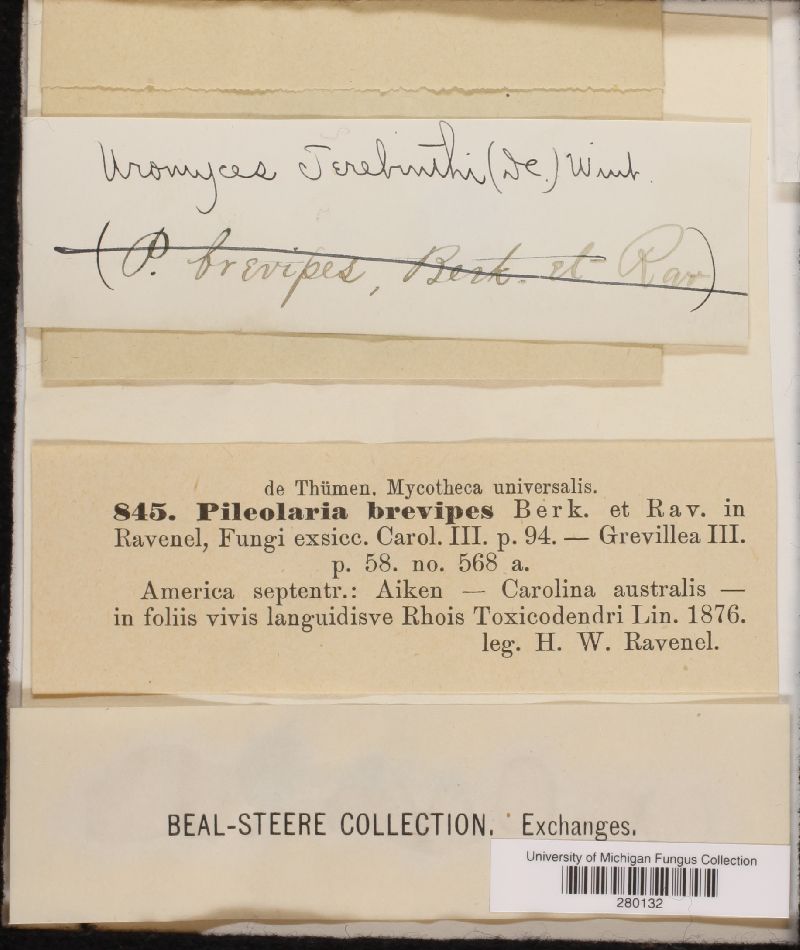 Uromyces Terebinthi (DC.) Wint.
(P. brevipes, Berk. et Rav)
de Thümen. Mycotheca universalis.
845. Pileolaria brevipes Berk. et Rav. in
Ravenel, Fungi exsicc. Carol. III. p. 94. — Grevillea III.
p. 58. no. 568 a.
America septentr.: Aiken — Carolina australis —
in foliis vivis languidisve Rhois Toxicodendri Lin. 1876.
leg. H. W. Ravenel.
BEAL-STEERE COLLECTION. Exchanges.
University of Michigan Fungus Collection
280132